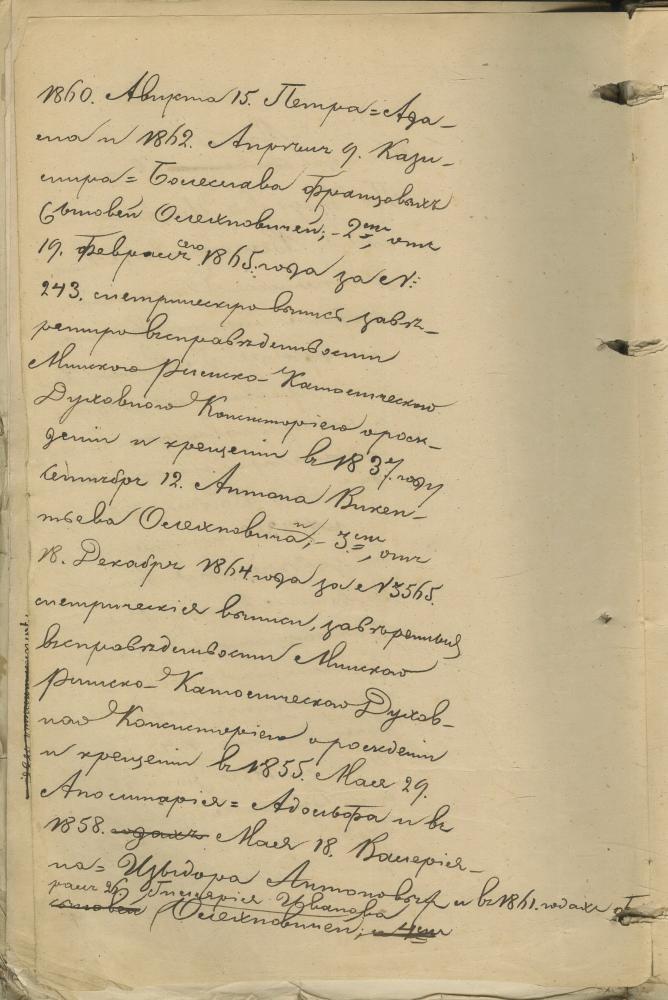 1860. Августа 15. Петра=Ада-
ма и 1862. Апрѣля 9. Кази-
мира=Болеслава Францовыхъ
Сыновей Олехновичей; – 2ю, отъ
19. Февраля 1865. года за №:
243. метрическую выпись завѣ-
ренную въ справедливости
Минскою Римско-Католическою
Духовною Консисторіею о рож-
деніи и крещеніи въ 1837. году
Сентября 12. Антона Викен-
тьева Олехновича; – 3ю, отъ
18. Декабря 1864. года за № 3565.
метрическія выписи, завѣренныя
въ справедливости Минскою
Римско-Католическою Духов-
ною Консисторіею о рожденіи
и крещеніи въ 1855. Мая 29.
Аполинарія=Адольфа и въ
1858. годахъ Мая 18. Валерія-
на=Изыдора Антоновыхъ и въ 1861. годахъ
раля 26. Гилярія Иванова
сыновей Олехновичей; 4ю